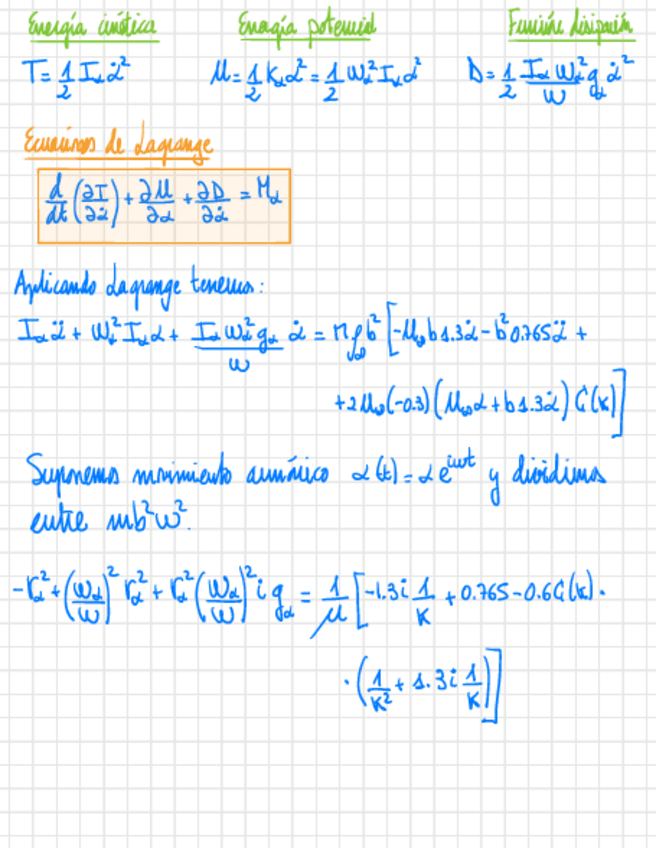 Energía cinética Energía potencial Función disipación
T = 1/2 I_α α̇² U = 1/2 K_α α² = 1/2 ω_α² I_α α² D = 1/2 (I_α ω_α²/ω) g_α α̇²
Ecuaciones de Lagrange
d/dt (∂T/∂α̇) + ∂U/∂α + ∂D/∂α̇ = M_α
Aplicando Lagrange tenemos:
I_α α̈ + ω_α² I_α α + (I_α ω_α² g_α/ω) α̇ = π ρ_∞ b² [-U_∞ b 1.3 α̇ - b² 0.765 α̈ +
+ 2 U_∞ (-0.3) (U_∞ α + b 1.3 α̇) C(k)]
Suponemos movimiento armónico α(t) = α e^{iωt} y dividimos
entre mb²ω².
-r_α² + (ω_α/ω)² r_α² + r_α² (ω_α/ω)² i g_α = 1/μ [-1.3 i 1/k + 0.765 - 0.6 C(k) ·
· (1/k² + 1.3 i 1/k)]